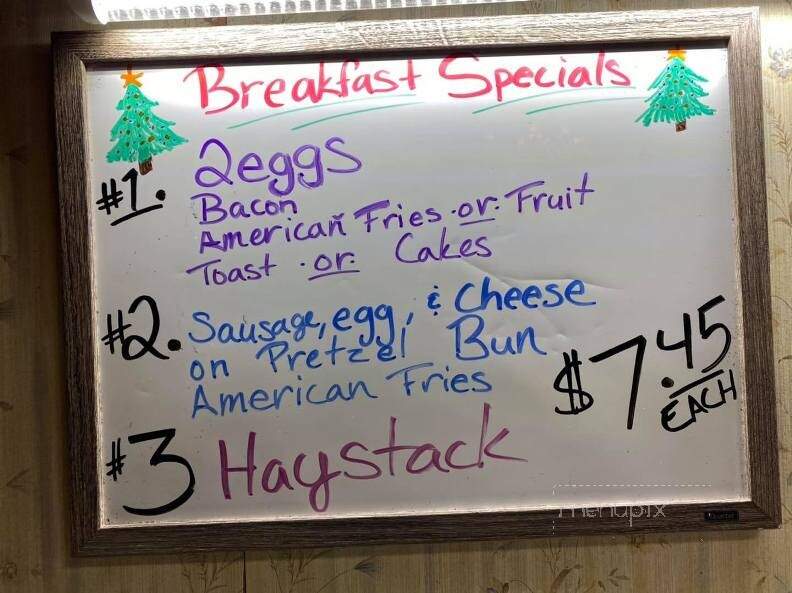 Breakfast Specials
#1. 2eggs
Bacon
American Fries ·or· Fruit
Toast ·or· Cakes
#2. Sausage, egg, & Cheese
on Pretzel Bun
American Fries
$7.45
EACH
#3 Haystack
menupix